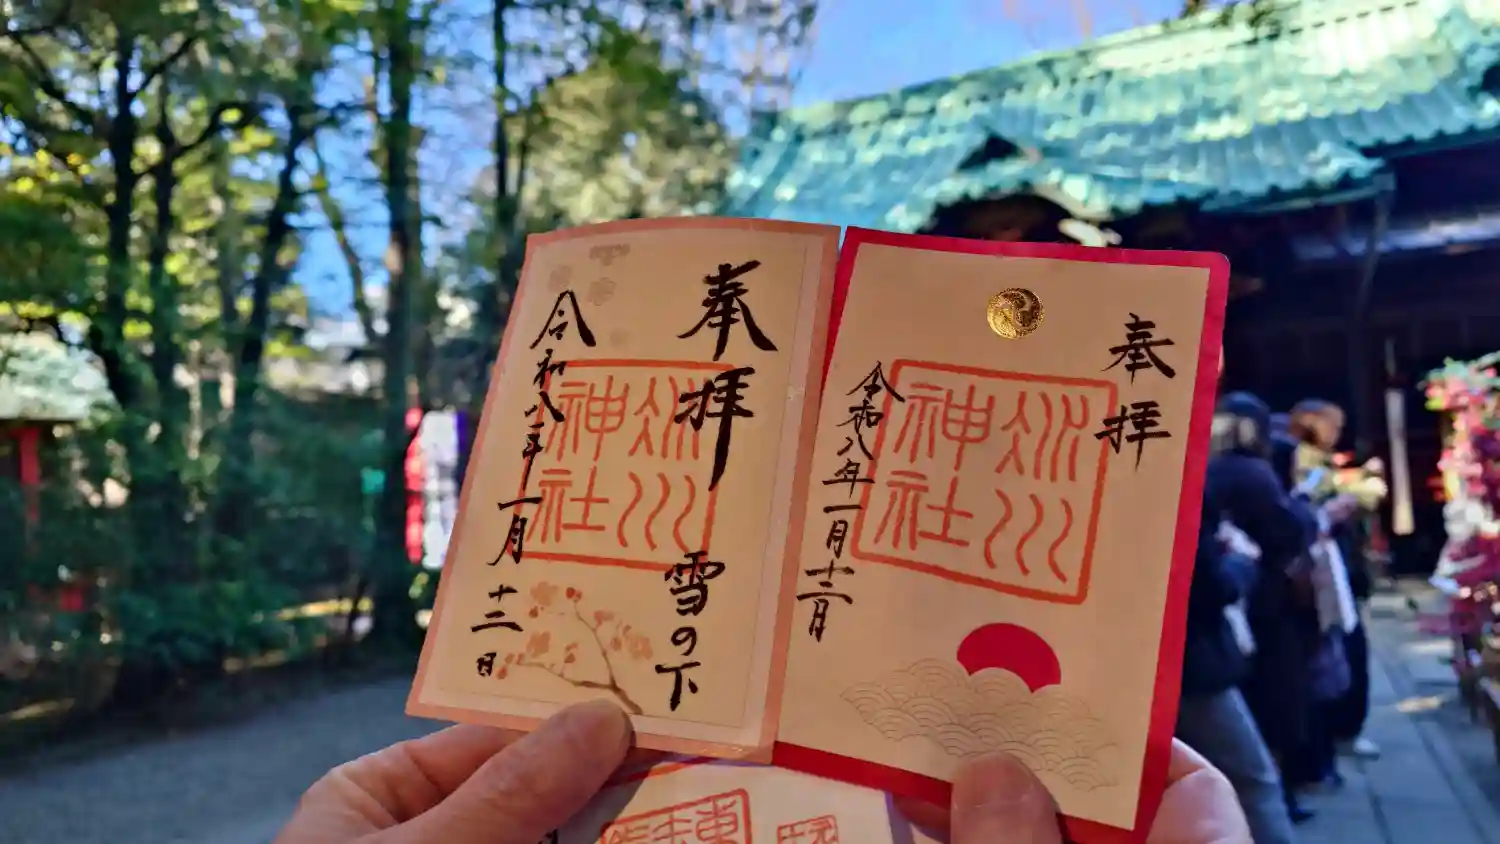 奉拝
雪の下
氷川
神社
令和八年一月十二日
奉拝
氷川
神社
令和八年一月十二日